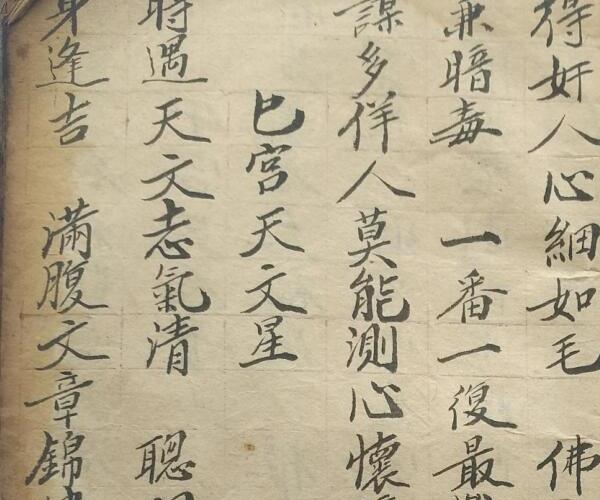 得奸人心細如毛 佛
兼暗毒 一番一復最
謀多佯人莫能測心懷
巳宮天文星
時遇天文志氣清 聰
身逢吉 滿腹文章錦